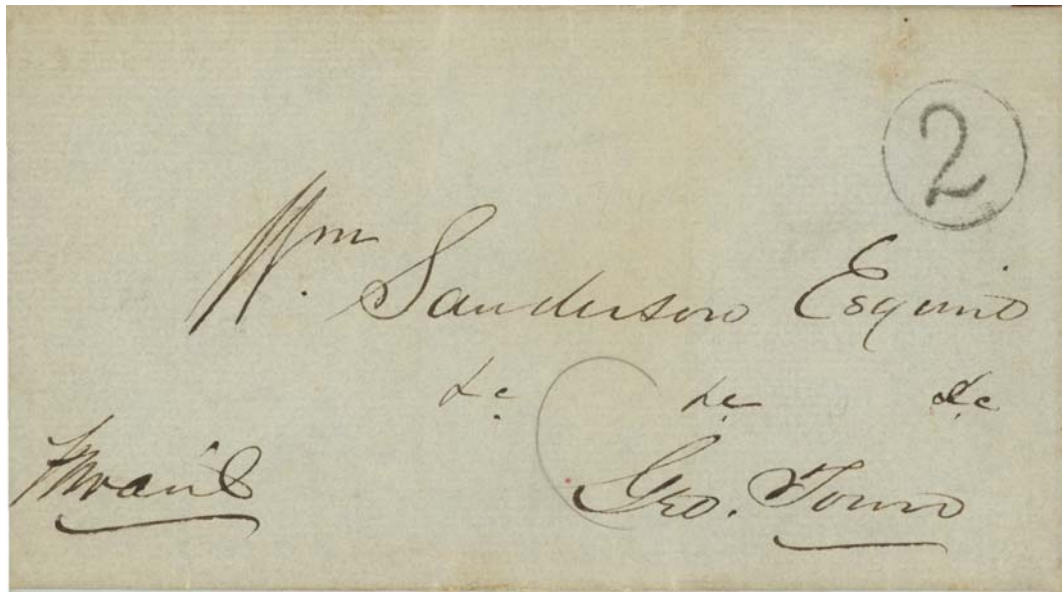 2
Wm. Sanderson Esquire
&c &c &c
Geo. Town